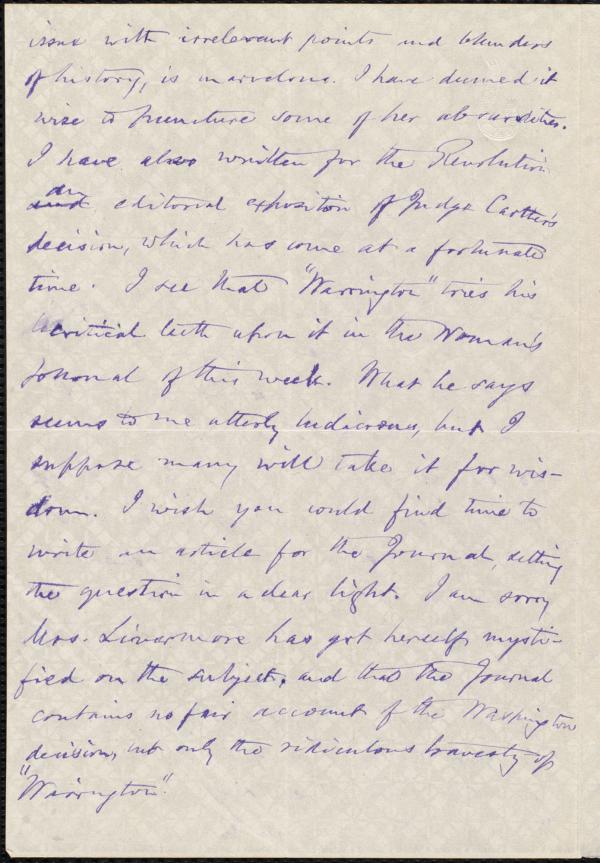 issue with irrelevant points and blunders
of history, is marvelous. I have deemed it
wise to puncture some of her absurdities.
I have also written for the Revolution
an editorial exposition of Judge Cartter's
decision, which has come at a fortunate
time. I see that "Warrington" tries his
critical teeth upon it in the Woman's
Journal of this week. What he says
seems to me utterly ludicrous, but I
suppose many will take it for wis-
dom. I wish you could find time to
write an article for the Journal, setting
the question in a clear light. I am sorry
Mrs. Livermore has got herself mysti-
fied on the subject, and that the Journal
contains no fair account of the Washington
decision, but only the ridiculous travesty of
"Warrington".